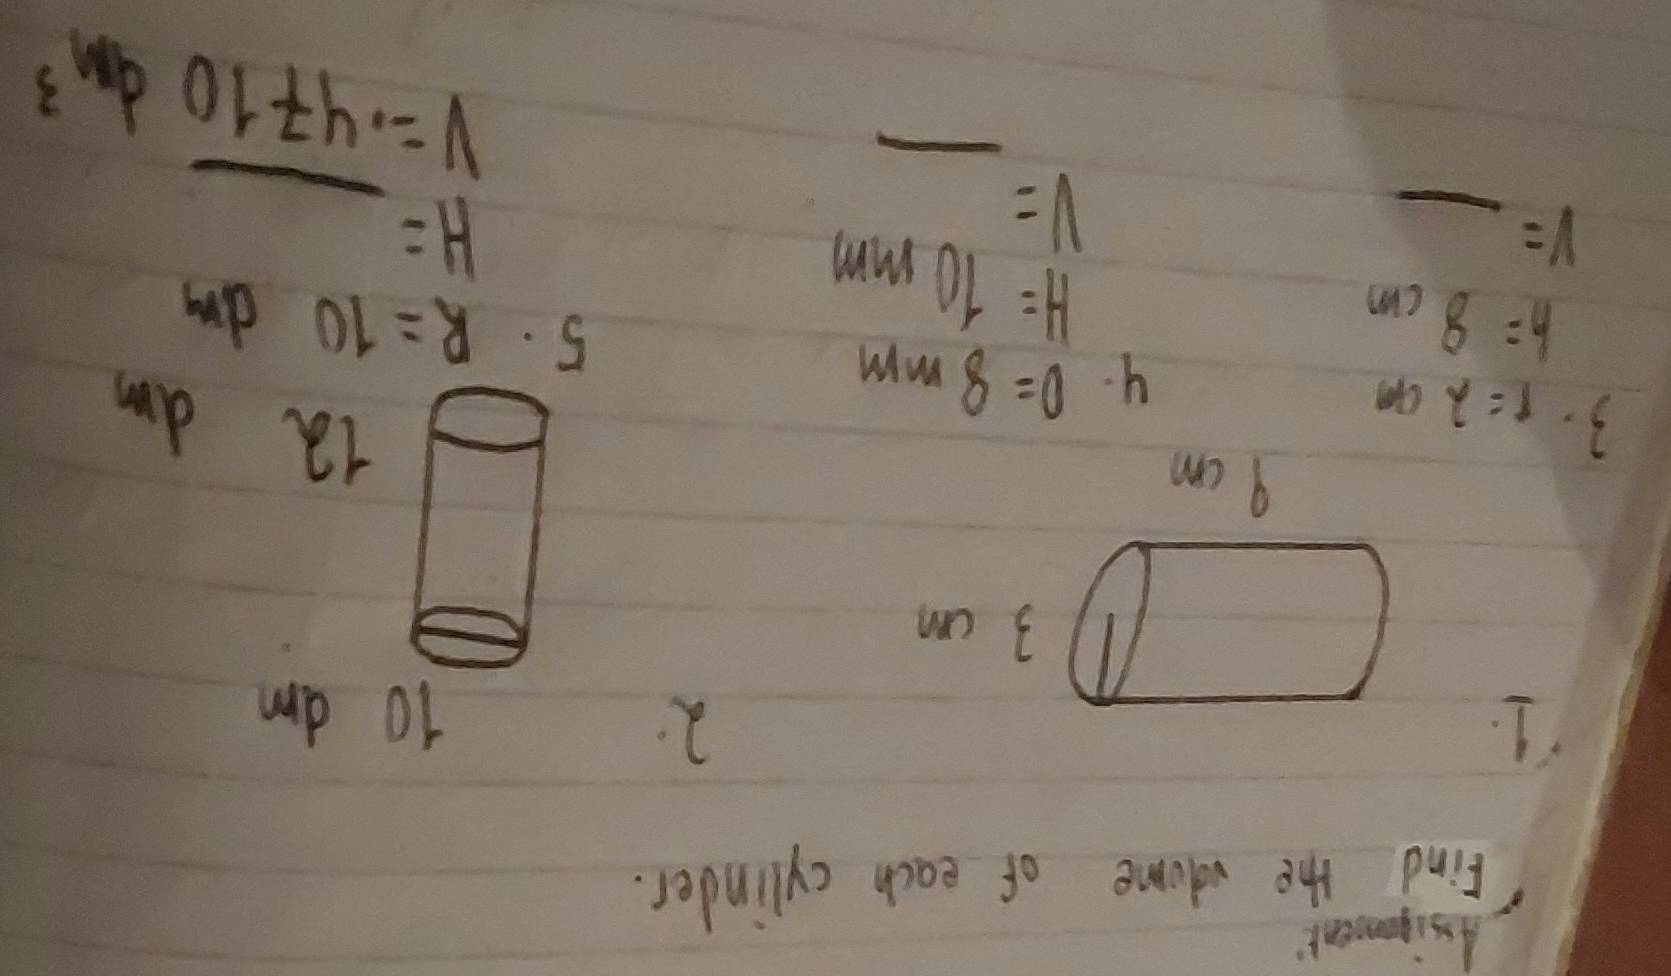 Assignment:
Find the volume of each cylinder.
1.
3 cm
9 cm
2.
10 dm
12 dm
3. r = 2 cm
h = 8 cm
V = ___
4. D = 8 mm
H = 10 mm
V = ___
5. R = 10 dm
H = ___
V = 4710 dm³